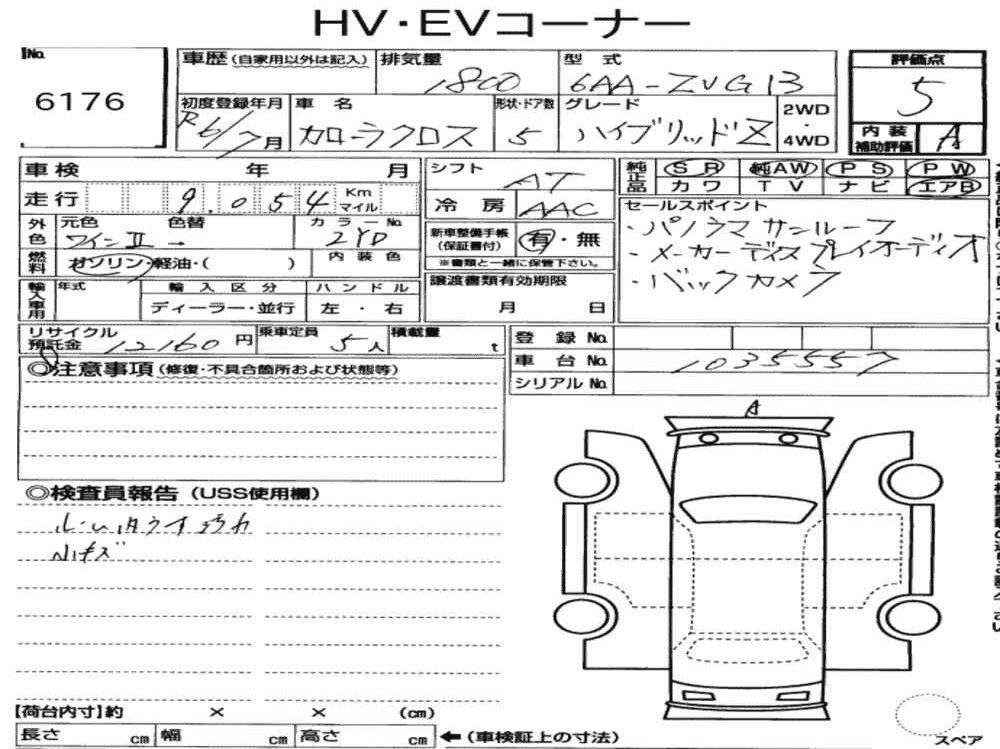 HV・EVコーナー
No.
6176
車歴 (自家用以外は記入)
排気量
1800
型式
6AA-ZVG13
評価点
5
初度登録年月
R6/7月
車名
カローラクロス
形状・ドア数
5
グレード
ハイブリッドZ
2WD
・
4WD
内装
補助評価
A
車検 年 月
走行 9.054 Km マイル
シフト
AT
冷房 AAC
純正品
SR 純AW PS PW
カワ TV ナビ エアB
外色
元色
色替
ワインⅡ →
カラーNo.
2YD
燃料
ガソリン・軽油・( )
内装色
新車整備手帳
(保証書付)
有・無
※書類と一緒に保管下さい。
セールスポイント
・パノラマサンルーフ
・メーカーディスプレイオーディオ
・バックカメラ
輸入車用
年式
輸入区分
ディーラー・並行
ハンドル
左・右
譲渡書類有効期限
月 日
リサイクル
預託金
12160円
乗車定員
5人
積載量
t
登録No.
車台No. 1035557
シリアルNo.
◎注意事項 (修復・不具合箇所および状態等)
◎検査員報告 (USS使用欄)
小キズ
A
【荷台内寸】約 × × (cm)
長さ cm 幅 cm 高さ cm ←(車検証上の寸法)
スペア